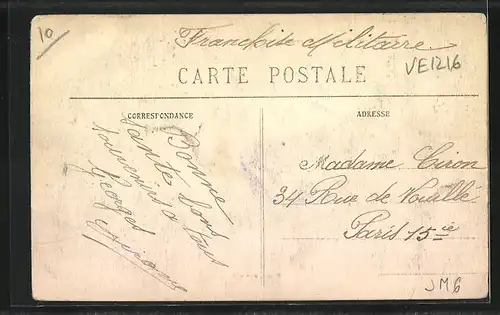 10
Franchise Militaire
VE1216
CARTE POSTALE
CORRESPONDANCE
ADRESSE
Bonne
Santé bons
souvenirs a tous
Georges
Madame Ciron
34 Rue de Vouillé
Paris 15 ie
JM6